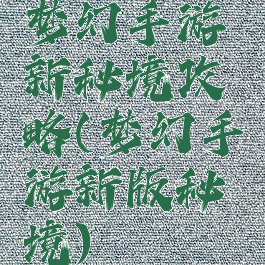 梦幻手游
新秘境攻
略(梦幻手
游新版秘
境)